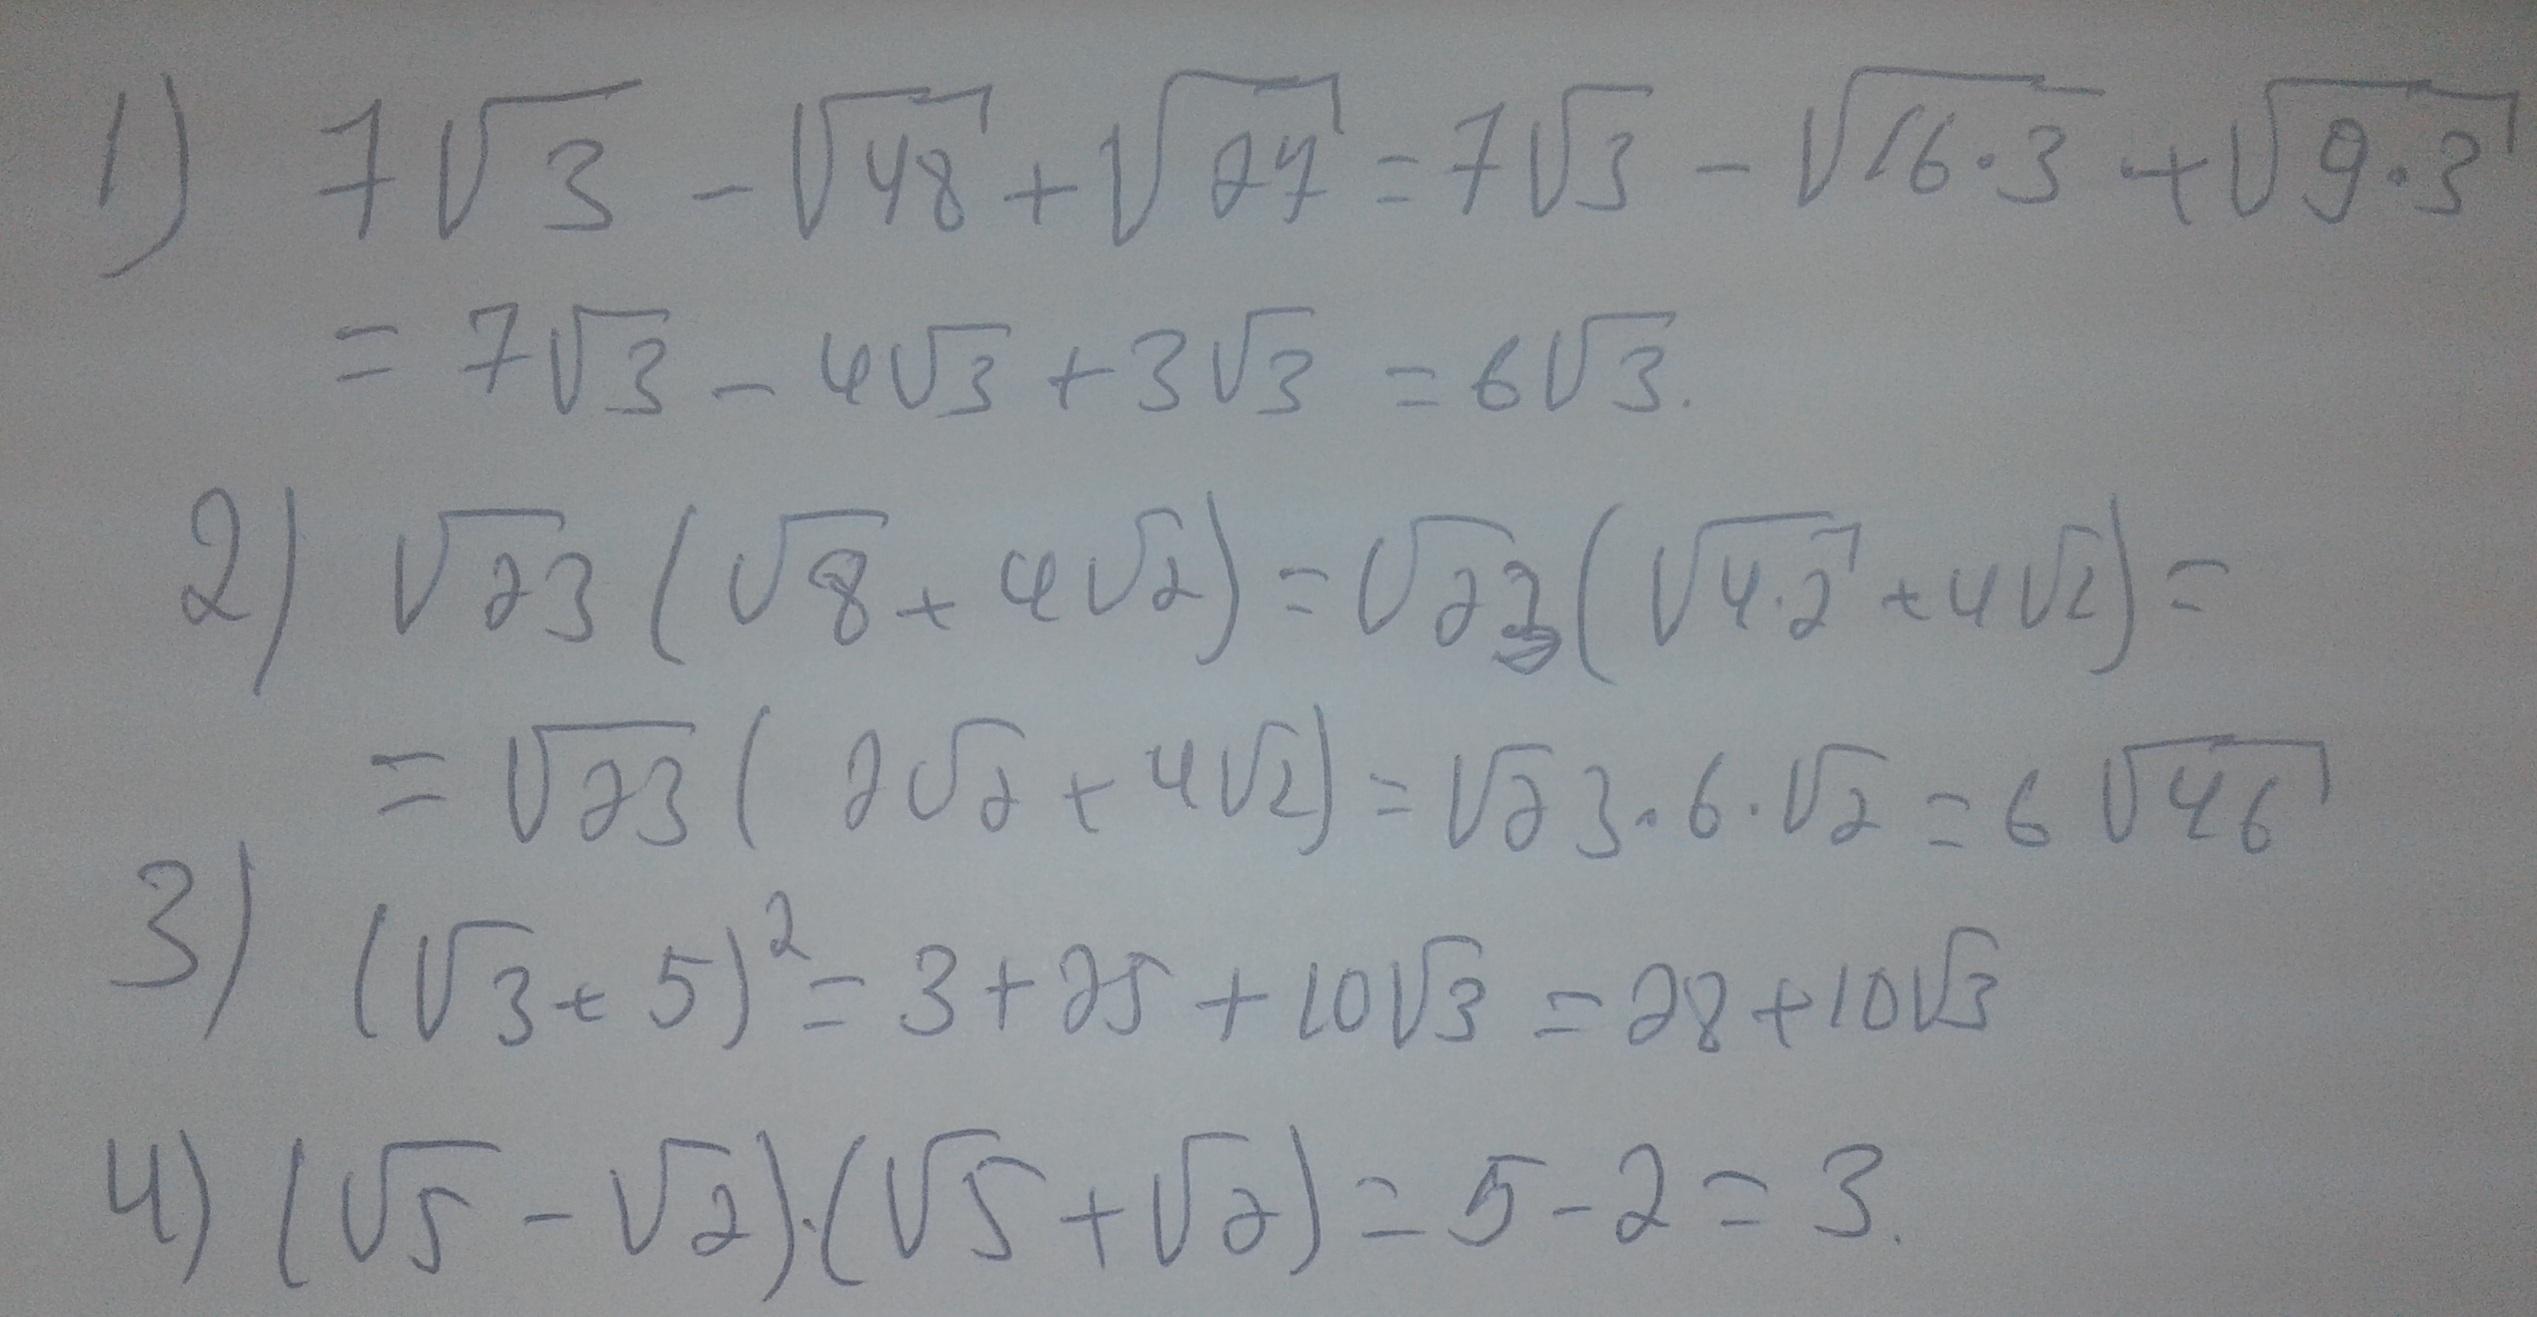 1) 7√3 - √48 + √27 = 7√3 - √16·3 + √9·3
= 7√3 - 4√3 + 3√3 = 6√3.
2) √23 (√8 + 4√2) = √23 (√4·2 + 4√2) =
= √23 (2√2 + 4√2) = √23 · 6 · √2 = 6√46
3) (√3 + 5)² = 3 + 25 + 10√3 = 28 + 10√3
4) (√5 - √2)·(√5 + √2) = 5 - 2 = 3.